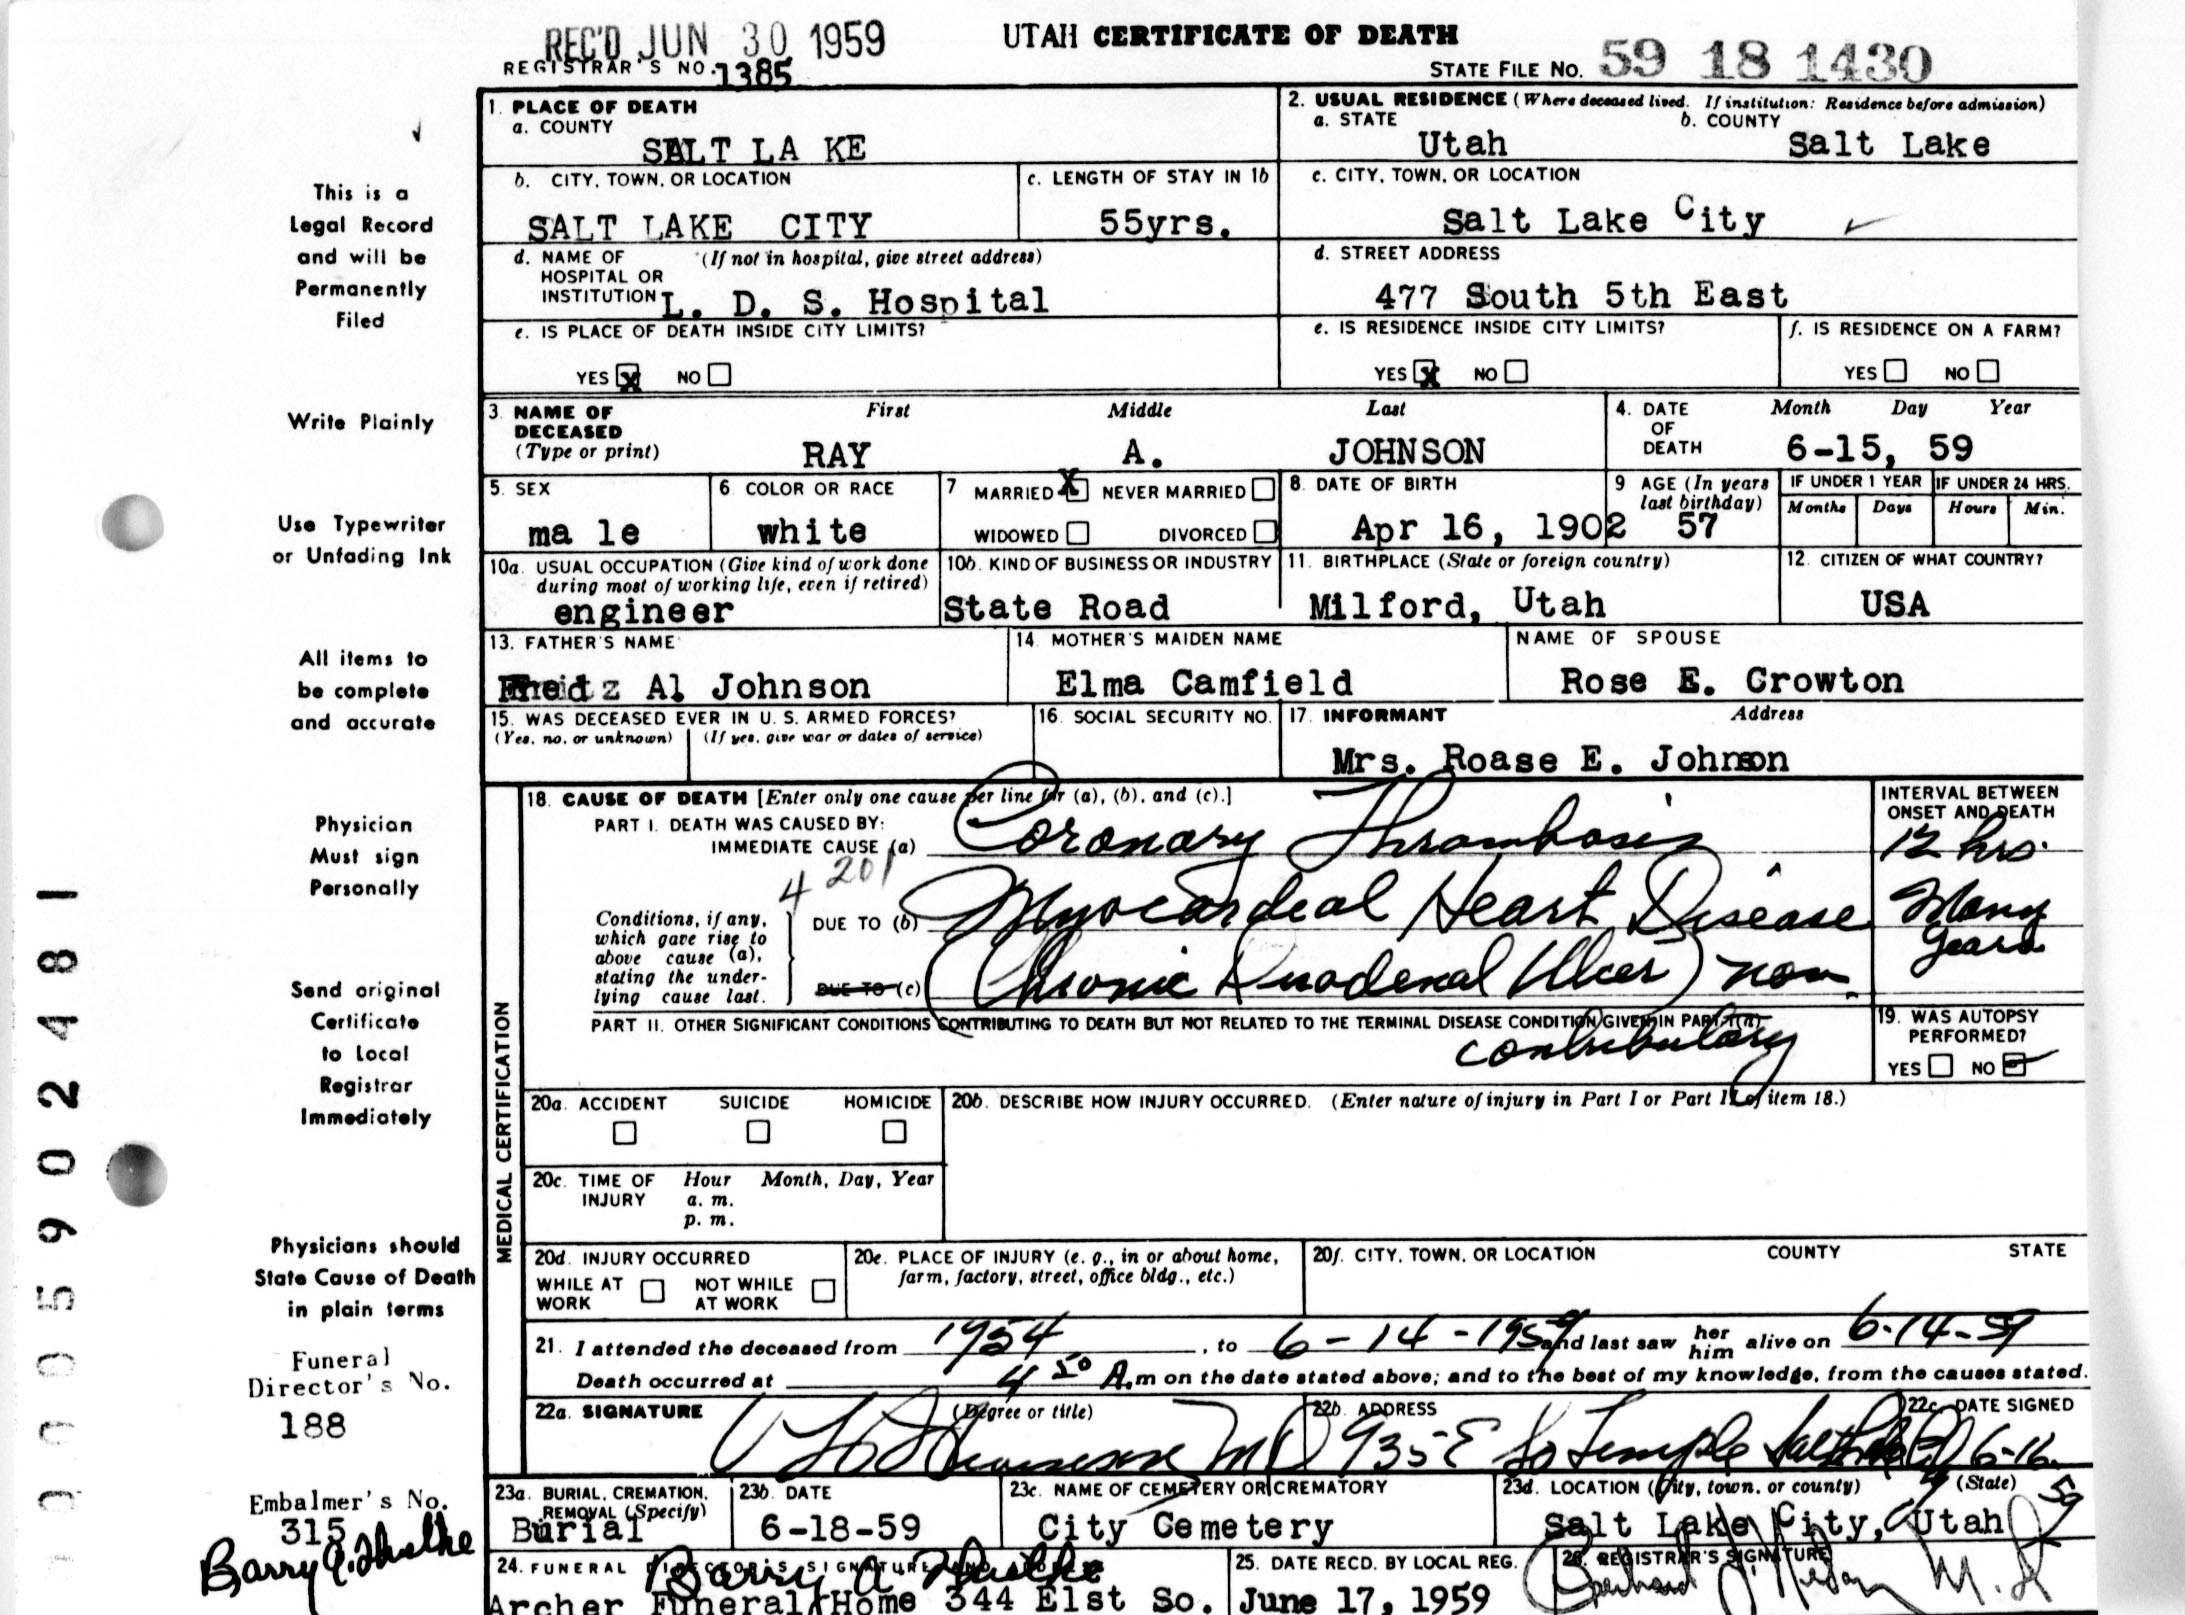 REC'D JUN 30 1959
UTAH CERTIFICATE OF DEATH
REGISTRAR'S NO. 1385
STATE FILE NO. 59 18 1430
1. PLACE OF DEATH
a. COUNTY
SALT LA KE
2. USUAL RESIDENCE (Where deceased lived. If institution: Residence before admission)
a. STATE
Utah
b. COUNTY
Salt Lake
b. CITY, TOWN, OR LOCATION
SALT LAKE CITY
c. LENGTH OF STAY IN 1b
55yrs.
c. CITY, TOWN, OR LOCATION
Salt Lake City
d. NAME OF HOSPITAL OR INSTITUTION (If not in hospital, give street address)
L. D. S. Hospital
d. STREET ADDRESS
477 South 5th East
e. IS PLACE OF DEATH INSIDE CITY LIMITS?
YES X NO
e. IS RESIDENCE INSIDE CITY LIMITS?
YES X NO
f. IS RESIDENCE ON A FARM?
YES NO
3. NAME OF DECEASED (Type or print)
First Middle Last
RAY A. JOHNSON
4. DATE OF DEATH
Month Day Year
6-15, 59
5. SEX
ma le
6. COLOR OR RACE
white
7 MARRIED X NEVER MARRIED
WIDOWED DIVORCED
8. DATE OF BIRTH
Apr 16, 1902
9 AGE (In years last birthday)
57
IF UNDER 1 YEAR
Months Days
IF UNDER 24 HRS.
Hours Min.
10a. USUAL OCCUPATION (Give kind of work done during most of working life, even if retired)
engineer
10b. KIND OF BUSINESS OR INDUSTRY
State Road
11. BIRTHPLACE (State or foreign country)
Milford, Utah
12. CITIZEN OF WHAT COUNTRY?
USA
13. FATHER'S NAME
Al Johnson
14. MOTHER'S MAIDEN NAME
Elma Camfield
NAME OF SPOUSE
Rose E. Crowton
15. WAS DECEASED EVER IN U. S. ARMED FORCES?
(Yes, no, or unknown) (If yes, give war or dates of service)
16. SOCIAL SECURITY NO.
17. INFORMANT Address
Mrs. Roase E. Johnson
MEDICAL CERTIFICATION
18. CAUSE OF DEATH [Enter only one cause per line for (a), (b), and (c).]
PART I. DEATH WAS CAUSED BY:
IMMEDIATE CAUSE (a) Coronary Thrombosis
4 201
Conditions, if any, which gave rise to above cause (a), stating the underlying cause last.
DUE TO (b) Myocardeal Heart Disease
DUE TO (c) (Chronic Duodenal Ulcer) non
contributory
INTERVAL BETWEEN ONSET AND DEATH
12 hrs.
Many years
PART II. OTHER SIGNIFICANT CONDITIONS CONTRIBUTING TO DEATH BUT NOT RELATED TO THE TERMINAL DISEASE CONDITION GIVEN IN PART I(a)
19. WAS AUTOPSY PERFORMED?
YES NO
20a. ACCIDENT SUICIDE HOMICIDE
20b. DESCRIBE HOW INJURY OCCURRED. (Enter nature of injury in Part I or Part II of item 18.)
20c. TIME OF INJURY
Hour Month, Day, Year
a. m.
p. m.
20d. INJURY OCCURRED
WHILE AT WORK NOT WHILE AT WORK
20e. PLACE OF INJURY (e. g., in or about home, farm, factory, street, office bldg., etc.)
20f. CITY, TOWN, OR LOCATION COUNTY STATE
21. I attended the deceased from 1954, to 6-14-1959 and last saw her him alive on 6-14-59
Death occurred at 4 50 A.m on the date stated above; and to the best of my knowledge, from the causes stated.
22a. SIGNATURE (Degree or title)
MD
22b. ADDRESS
935 E So Temple
22c. DATE SIGNED
6-16-59
23a. BURIAL, CREMATION, REMOVAL (Specify)
Burial
23b. DATE
6-18-59
23c. NAME OF CEMETERY OR CREMATORY
City Cemetery
23d. LOCATION (City, town, or county) (State)
Salt Lake City, Utah
24. FUNERAL DIRECTOR'S SIGNATURE
Barry A
Archer Funeral Home 344 E1st So.
25. DATE RECD. BY LOCAL REG.
June 17, 1959
26. REGISTRAR'S SIGNATURE
M. D
This is a
Legal Record
and will be
Permanently
Filed
Write Plainly
Use Typewriter
or Unfading Ink
All items to
be complete
and accurate
Physician
Must sign
Personally
Send original
Certificate
to Local
Registrar
Immediately
Physicians should
State Cause of Death
in plain terms
Funeral
Director's No.
188
Embalmer's No.
315
Barry
0005902481